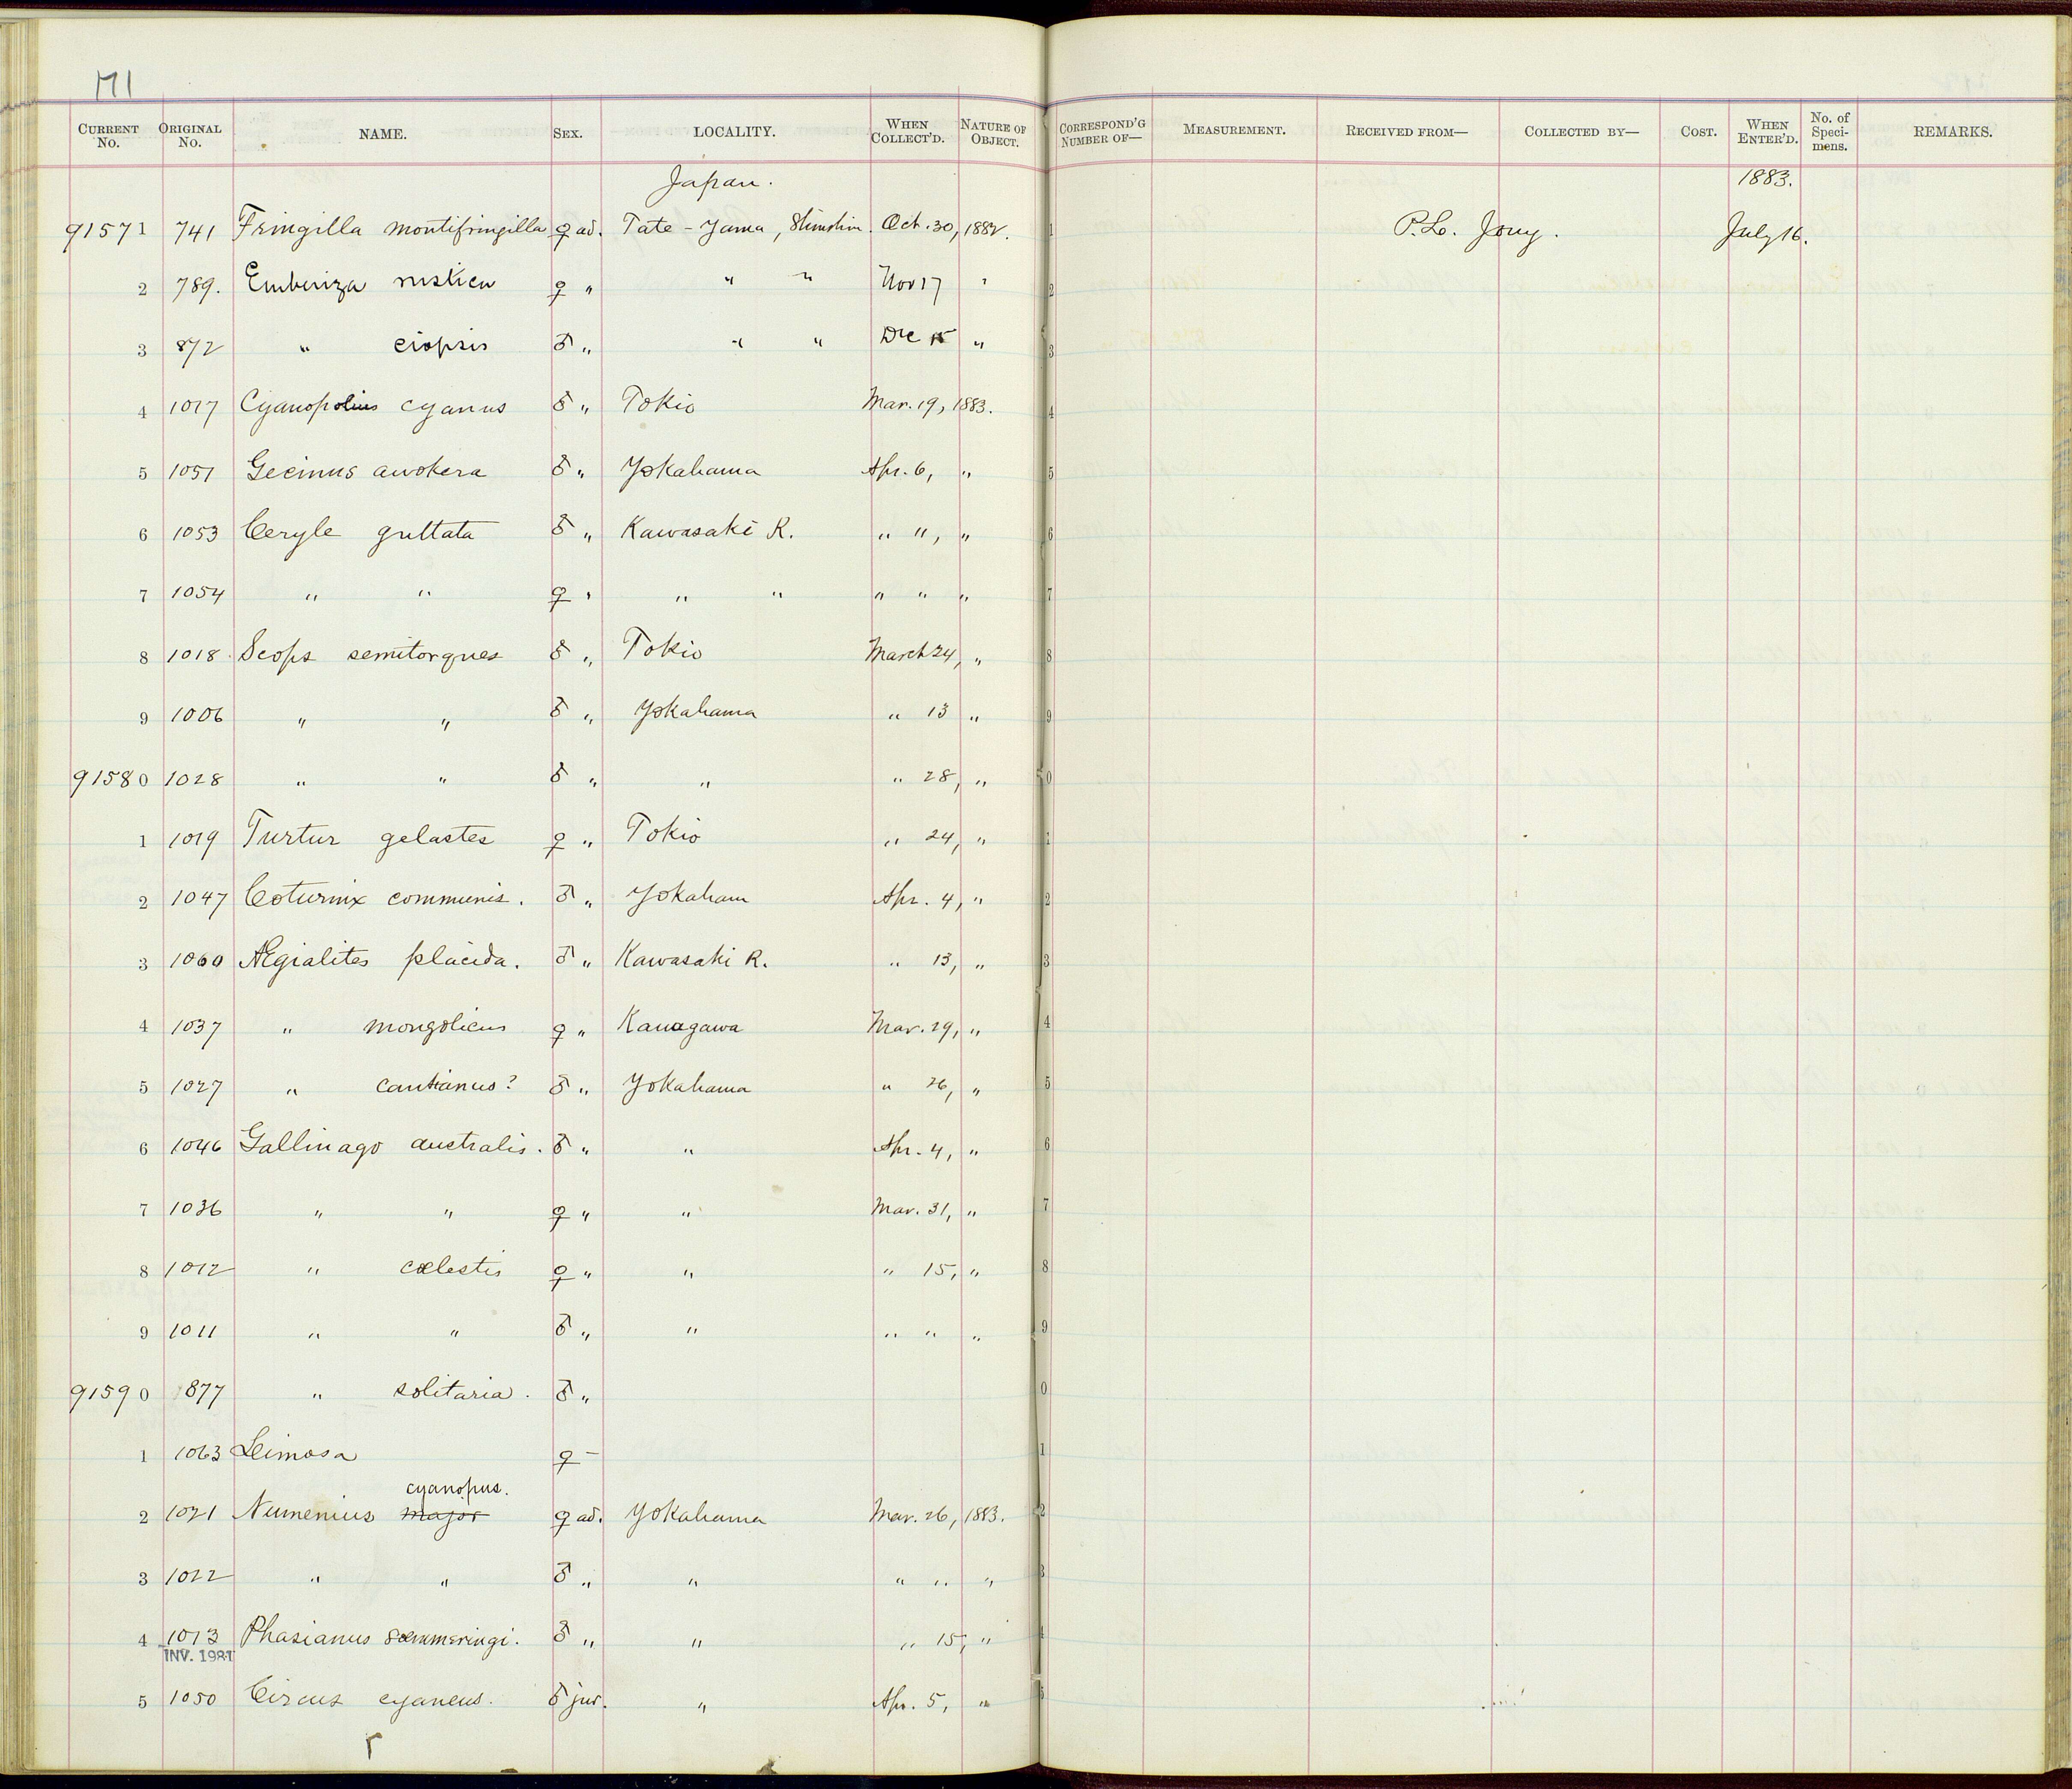 171
CURRENT No. ORIGINAL No. NAME. SEX. LOCALITY. WHEN COLLECT'D. NATURE OF OBJECT. CORRESPOND'G NUMBER OF— MEASUREMENT. RECEIVED FROM— COLLECTED BY— COST. WHEN ENTER'D. No. of Speci-mens. REMARKS.
Japan. 1883.
91571 741 Fringilla montifringilla ♀ ad. Tate-Yama, Shinshin. Oct. 30, 1882. 1 P. L. Jouy. July 16.
2 789. Emberiza rustica ♀ " " " Nov 17 " 2
3 872 " ciopsis ♂ " " " Dec 15 " 3
4 1017 Cyanopolius cyanus ♂ " Tokio Mar. 19, 1883. 4
5 1051 Gecinus awokera ♂ " Yokahama Apr. 6, " 5
6 1053 Ceryle guttata ♂ " Kawasaki R. " ", " 6
7 1054 " " ♀ " " " " " " 7
8 1018 Scops semitorques ♂ " Tokio March 24, " 8
9 1006 " " ♂ " Yokahama " 13 " 9
91580 1028 " " ♂ " " " 28, " 0
1 1019 Turtur gelastes ♀ " Tokio " 24, " 1
2 1047 Coturnix communis. ♂ " Yokaham Apr. 4, " 2
3 1060 Ægialites placida. ♂ " Kawasaki R. " 13, " 3
4 1037 " mongolicus ♀ " Kanagawa Mar. 29, " 4
5 1027 " cantianus? ♂ " Yokahama " 26, " 5
6 1046 Gallinago australis. ♂ " " Apr. 4, " 6
7 1036 " " ♀ " " Mar. 31, " 7
8 1012 " cœlestis ♀ " " " 15, " 8
9 1011 " " ♂ " " " " " 9
91590 877 " solitaria. ♂ " 0
1 1063 Limosa ♀ – 1
cyanopus.
2 1021 Numenius major ♀ ad. Yokahama Mar. 26, 1883. 2
3 1022 " " ♂ " " " " " 3
4 1013 Phasianus sœmmeringi. ♂ " " " 15, " 4
INV. 1981
5 1050 Circus cyaneus. ♂ juv. " Apr. 5, " 5